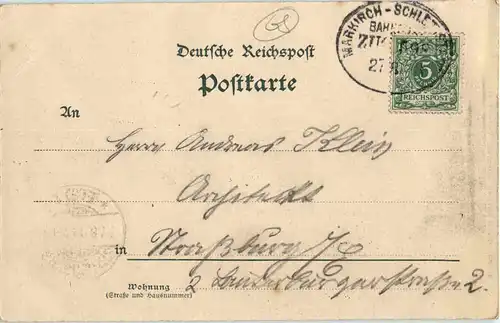 MARKIRCH - SCHLE
BAHN
ZUG
27
5
REICHSPOST
Deutsche Reichspost
Postkarte
An
Herrn Andreas Klein
Architekt
in Straßburg i/E
Wohnung
(Straße und Hausnummer)
2 Landerburgerstraße 2.